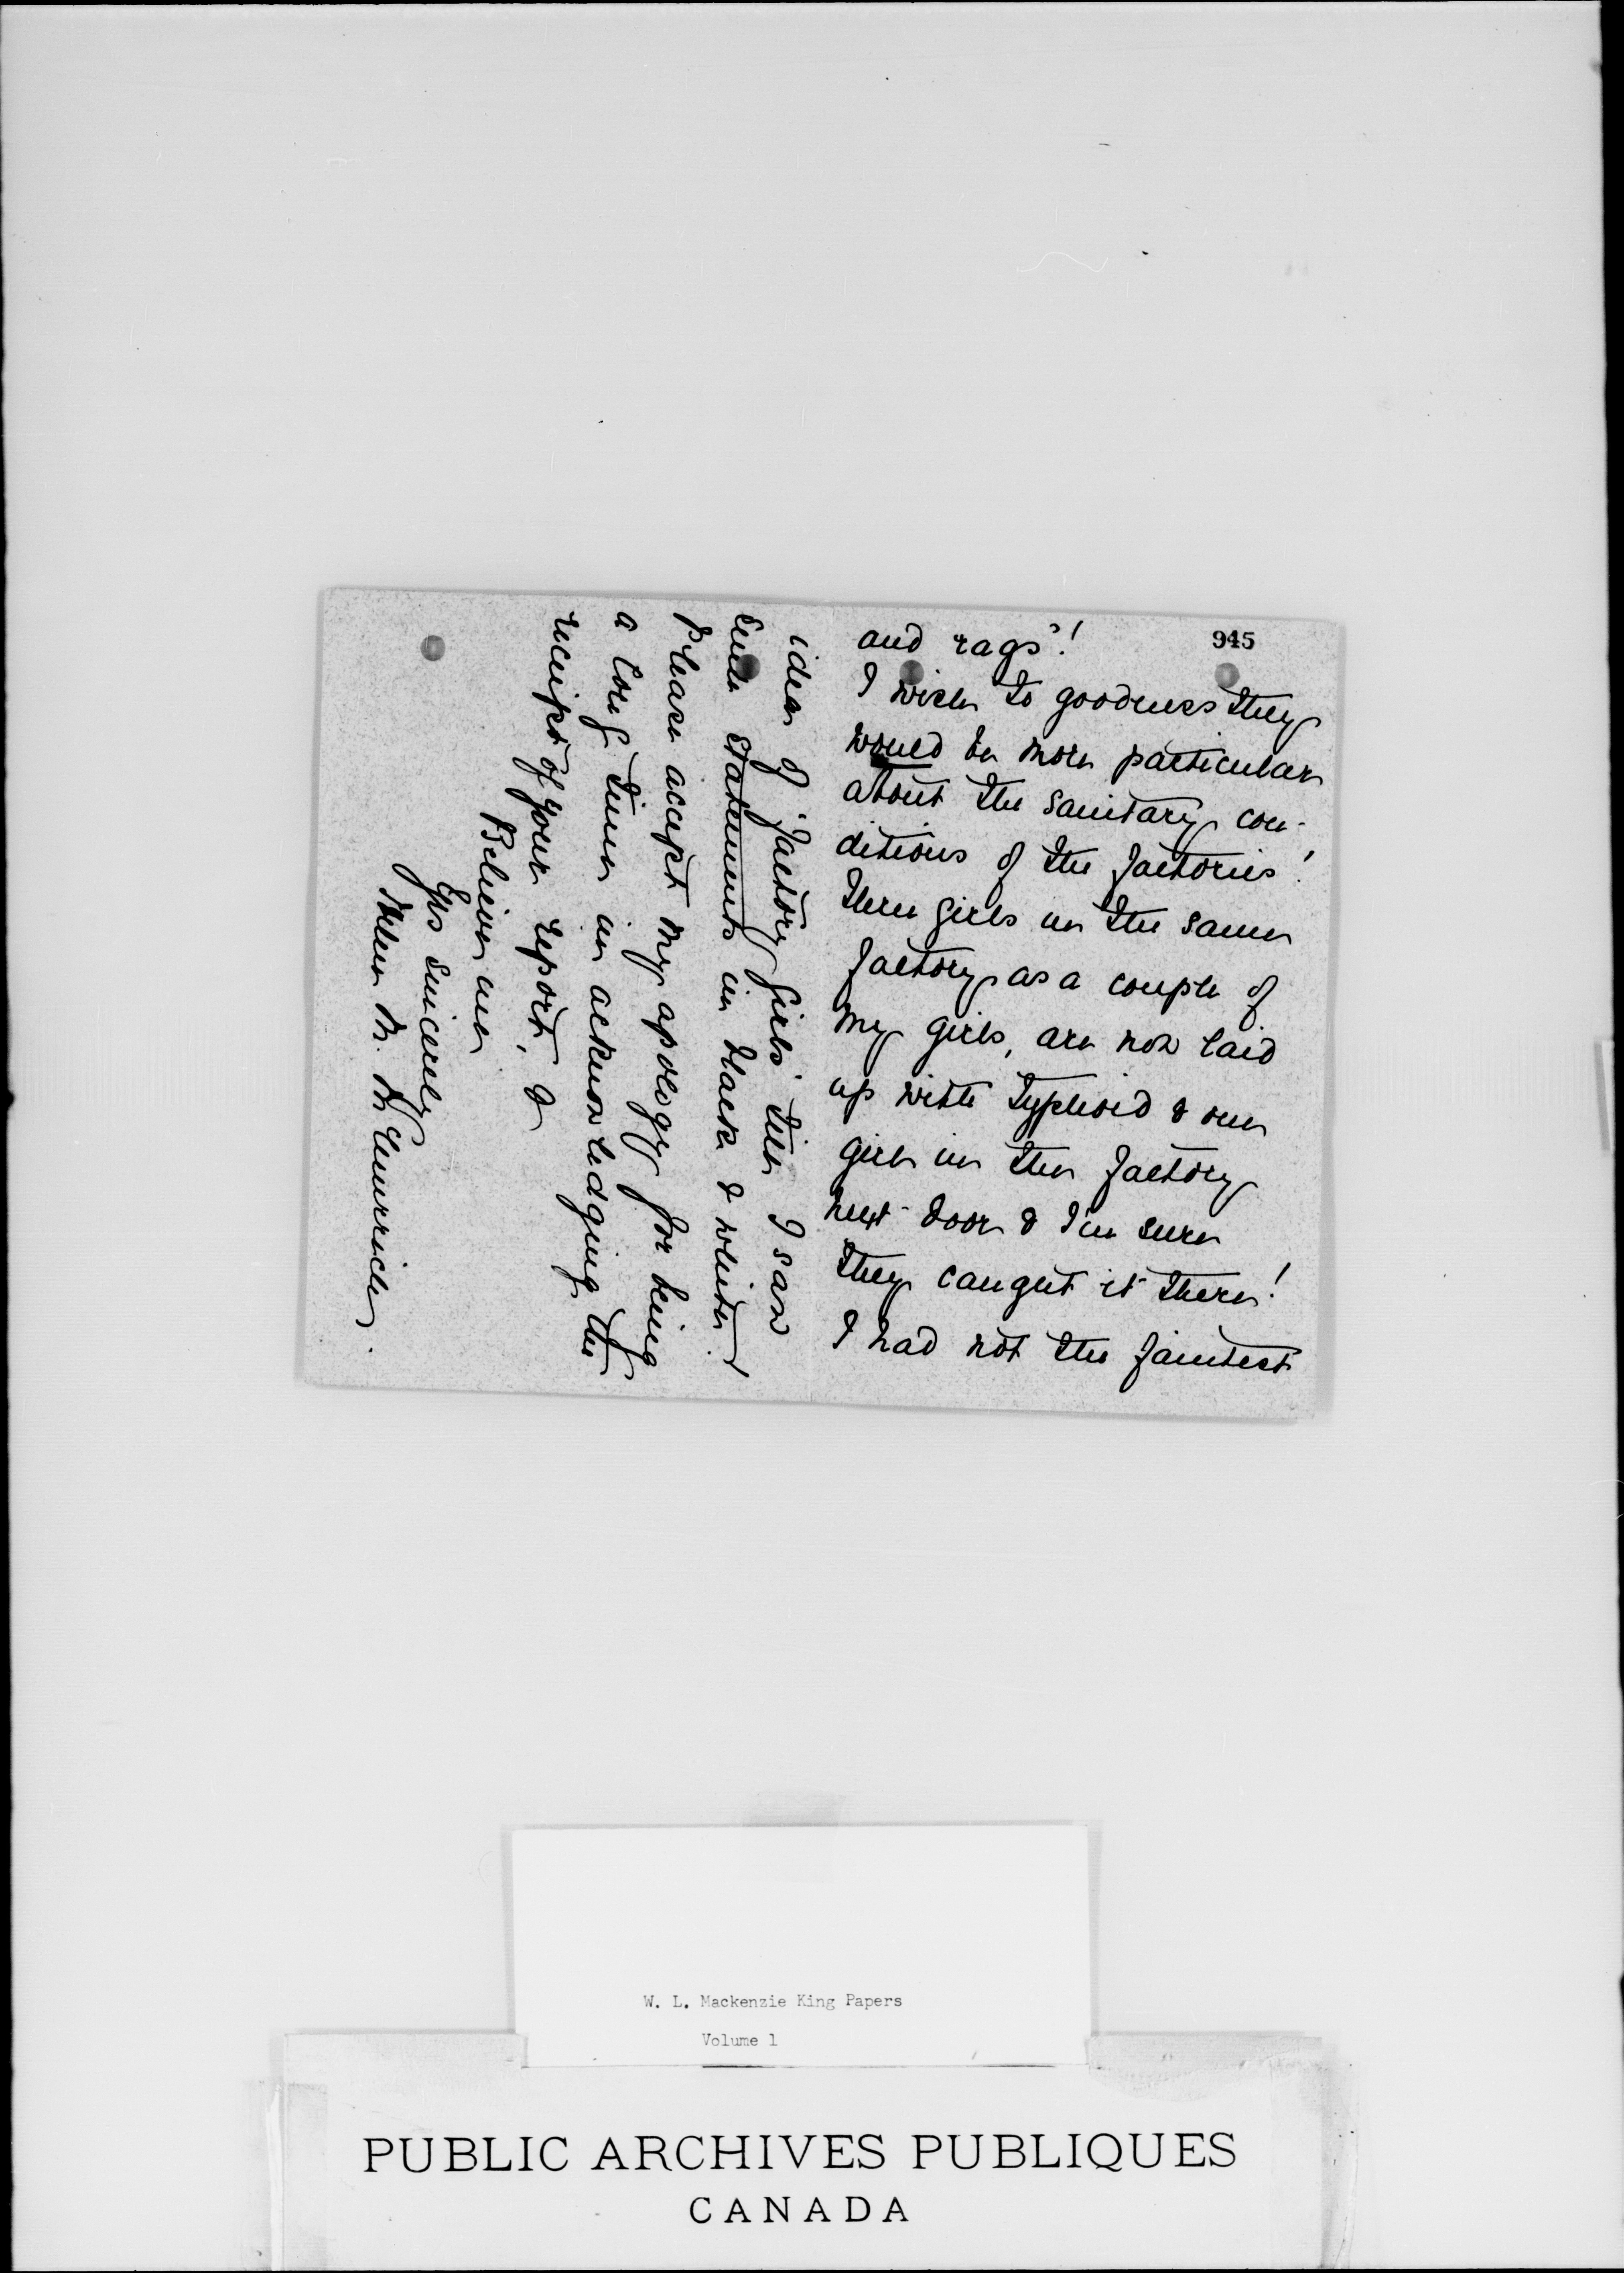 945
and rags"!
I wish to goodness they
would be more particular
about the sanitary con-
ditions of the factories!
Three girls in the same
factory as a couple of
my girls, are now laid
up with typhoid & one
girl in the factory
next door & I'm sure
they caught it there!
I had not the faintest
idea of 'factory girls' till I saw
such statements in black & white!
Please accept my apology for being
a long time in acknowledging the
receipt of your report, &
Believe me
Yrs sincerely
Helen M. McMurrich.
W. L. Mackenzie King Papers
Volume 1
PUBLIC ARCHIVES PUBLIQUES
CANADA